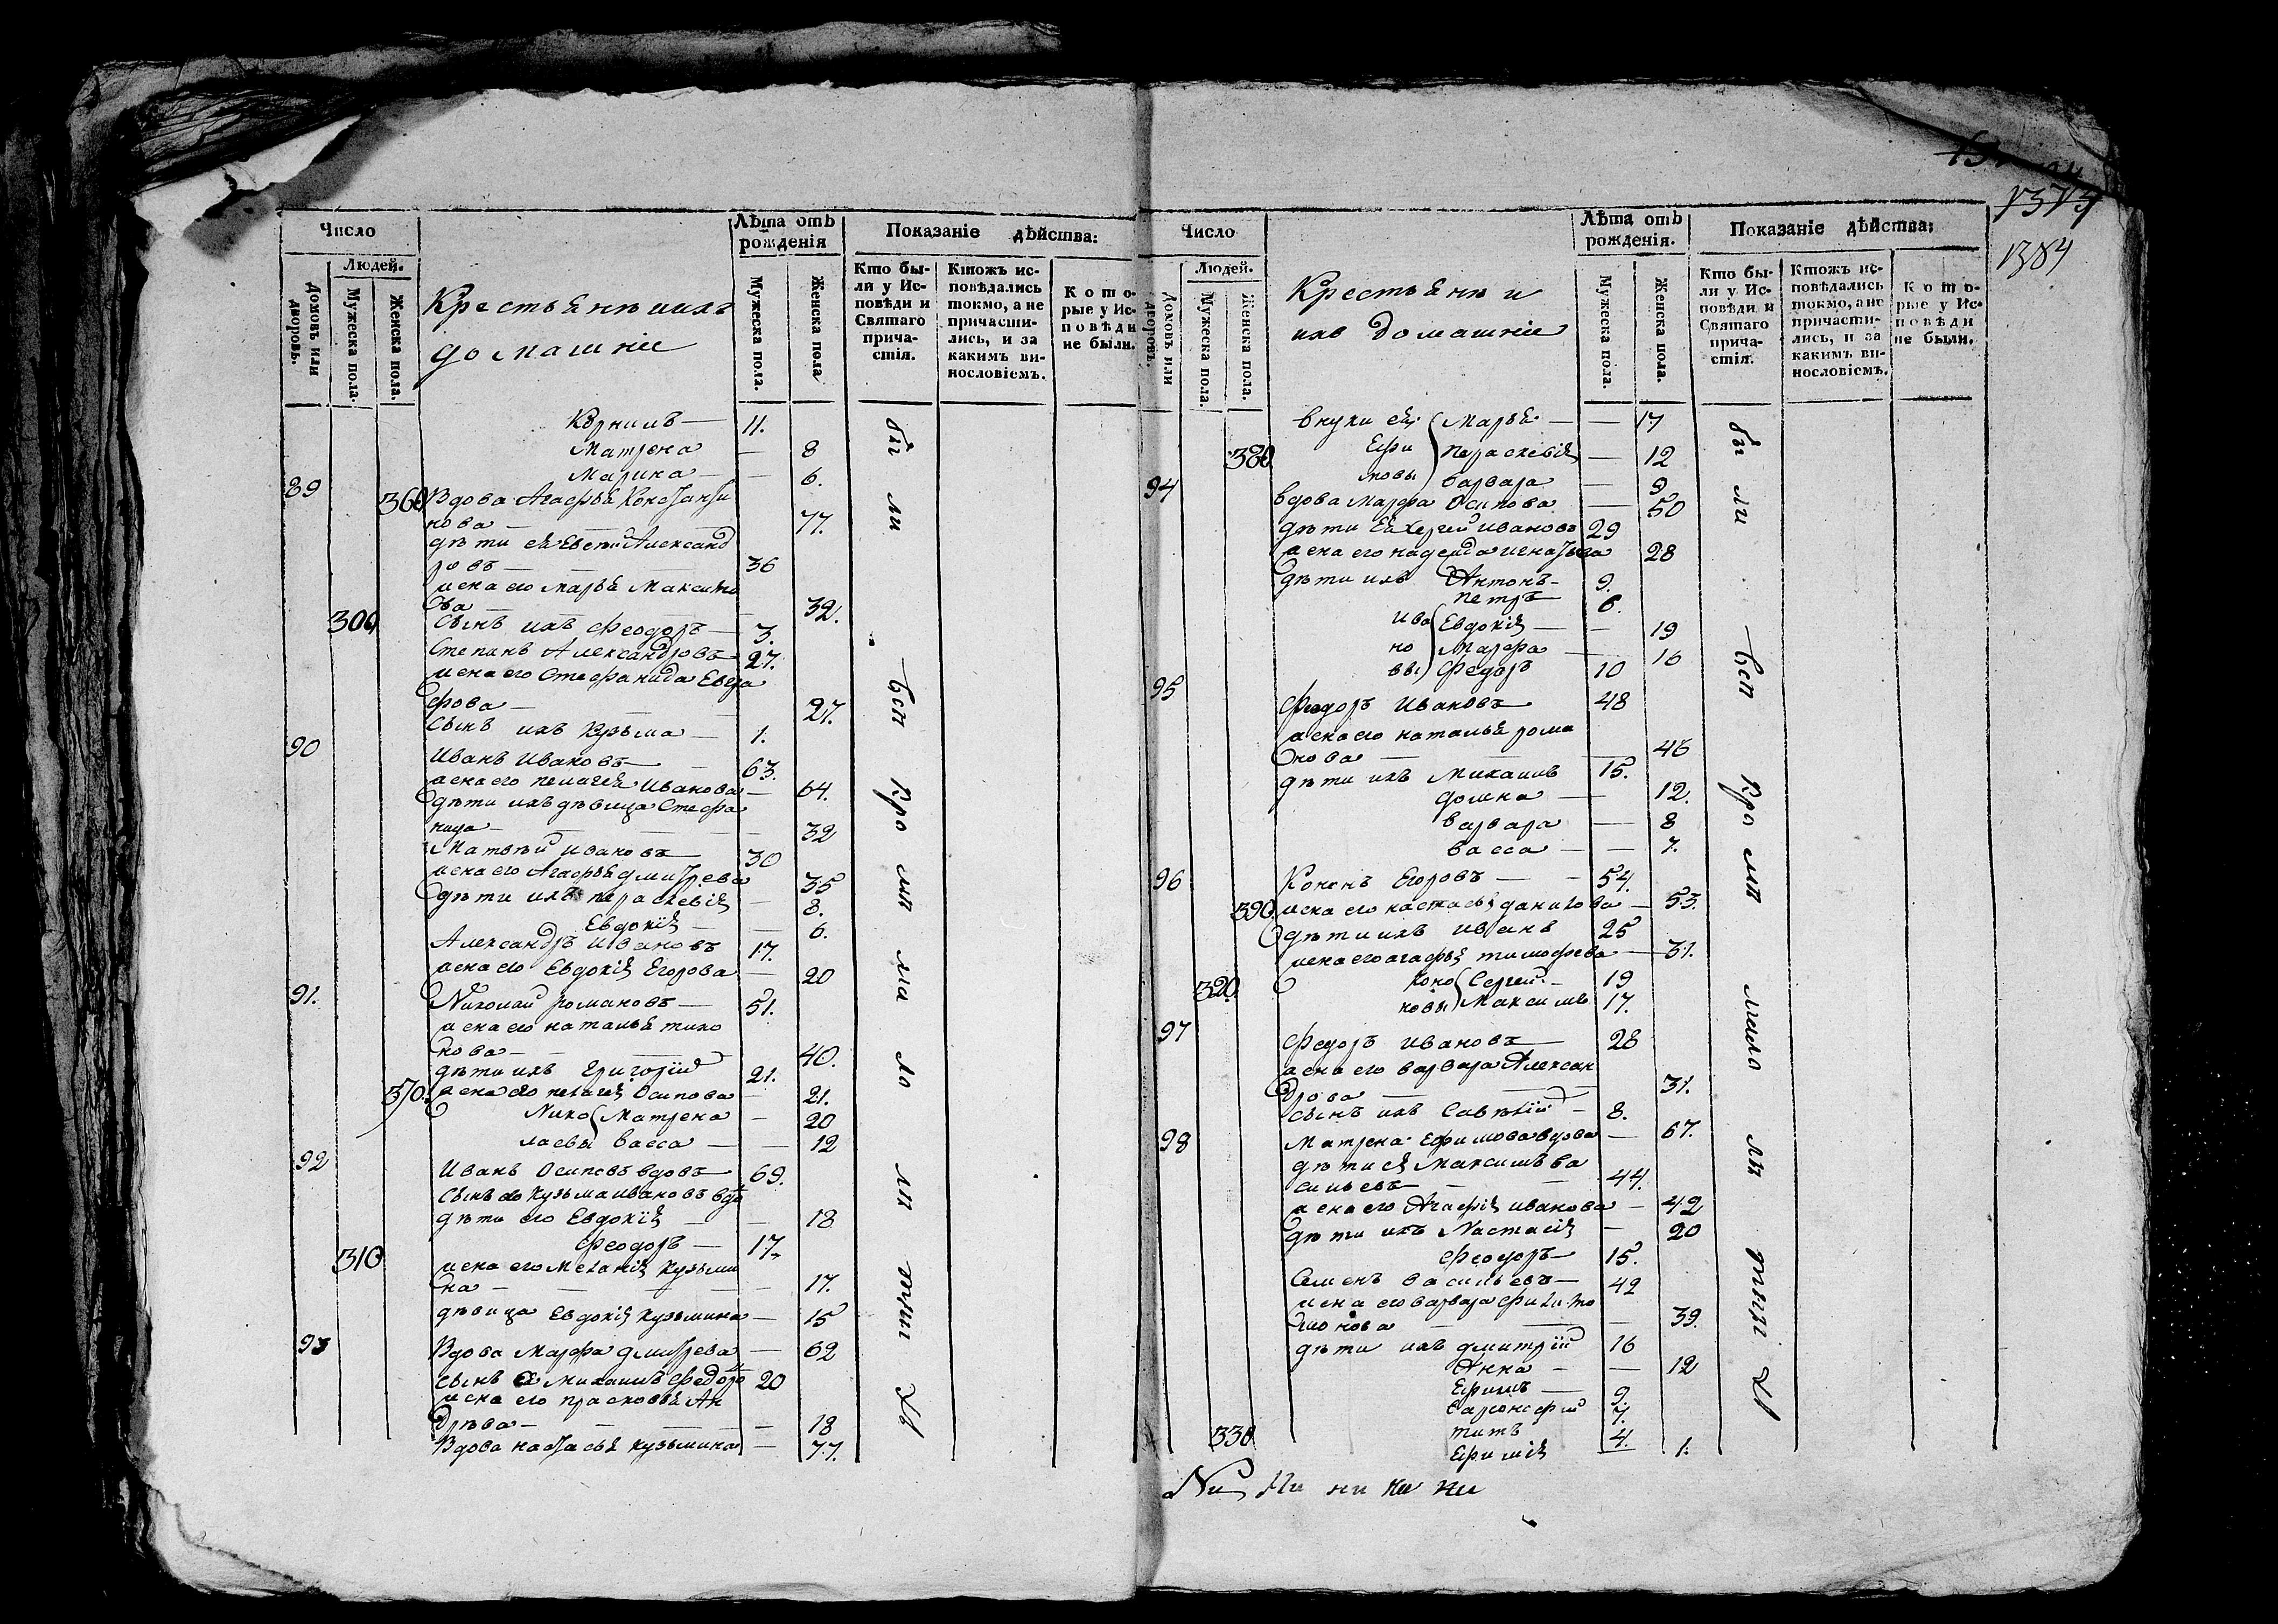 1384
Число
Людей.
Домовъ или дворовъ.
Мужеска пола.
Женска пола.
Крестьянѣ ихъ
домашніе
Лѣта отъ рожденія
Мужеска пола.
Женска пола
Показаніе дѣйства:
Кто были у Исповѣди и Святаго причастія.
Ктожъ исповѣдались токмо, а не причастились, и за какимъ винословіемъ.
Которые у Исповѣди не были.
Корнилъ — 11.
Матрена — 8
Марина — 6.
89 360 Вдова Агафья Константи
нова — 77.
дѣти ея Александ
ровъ — 36
жена его Марья Максимо
ва — 32.
300 сынъ ихъ Феодоръ — 3.
Степанъ Александровъ 27.
жена его Стефанида Евста
фова — 27.
сынъ ихъ Кузьма — 1.
90 Иванъ Ивановъ — 63.
жена его Пелагея Иванова — 64.
дѣти ихъ дѣвица Стефа
нида — 32
Матвѣй Ивановъ 30
жена его Агафья Дмитрева 35
дѣти ихъ Параскевія — 8.
Евдокія — 6.
Александръ Ивановъ 17.
жена его Евдокія Егорова — 20
91. Николай Романовъ — 51.
жена его Наталья Тихо
нова — 40.
дѣти ихъ Григорій 21.
370. жена его Пелагея Осипова 21.
Нико Матрена — 20
лаевы Васса — 12
92 Иванъ Осиповъ вдовъ 69.
сынъ его Кузьма Ивановъ вдо
дѣти его Евдокія — 18
Феодоръ — 17.
310 жена его Меланія Кузьми
на — 17.
дѣвица Евдокія Кузьмина — 15
93 Вдова Марфа Дмитрева — 62
сынъ ея Михаилъ Федоро 20
жена его Прасковья Ан
дрѣва — 18
Вдова Настасья Кузьмина — 77.
бы
ли
Всп
Кро
мѣ
ма
ло
лѣ
тни
хъ
Число
Людей.
Домовъ или дворовъ.
Мужеска пола.
Женска пола.
Крестьянѣ и
ихъ домашніе
Лѣта отъ рожденія.
Мужеска пола.
Женска пола.
Показаніе дѣйства:
Кто были у Исповѣди и Святаго причастія.
Ктожъ исповѣдались токмо, а не причастились, и за какимъ винословіемъ.
Которые у Исповѣди не были.
внуки ея Марья — 17
380 Ефи Параскевія — 12
мовы Варвара — 9
94 вдова Марфа Осипова — 50
дѣти Ея Сергей Ивановъ 29
жена его Надежда Игнатьева 28
дѣти ихъ Антонъ — 9.
Петръ 6.
Ива Евдокія — 19
но Марфа — 16
вы Федоръ 10
95 Феодоръ Ивановъ 48
жена его Наталья Рома
нова — 46
дѣти ихъ Михаилъ 15.
Домна — 12.
Варвара — 8
Васса — 7.
96 Кононъ Егоровъ — 54.
390 жена его Настасья Данилова — 53.
дѣти ихъ Иванъ 25
жена его Агафья Тимофеева — 31.
Коно Сергей — 19
320 новы Максимъ 17.
97 Федоръ Ивановъ 28
жена его Варвара Алексан
дрова — 31.
сынъ ихъ Савѣлій — 8.
98 Матрена Ефимова вдова — 67.
дѣти ея Максимъ Ва
сильевъ — 44.
жена его Агафія Иванова — 42
дѣти ихъ Настасія — 20
Феодоръ 15.
Семенъ Васильевъ 42
жена его Варвара Филимо
монова — 39.
дѣти ихъ Дмитрій 16
Анна — 12
Ефимъ — 9.
7.
330 Титъ 4.
Ефимія — 1.
бы
ли
Всп
Кро
мѣ
мало
лѣ
тнихъ
Ни Ни ни ни ни